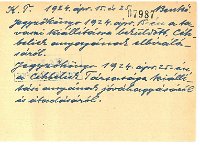 K. T. 1924. ápr. 15. és 25. Bankó
17987.
Jegyzőkönyv 1924. ápr. 15-én a ta-
vaszi kiállításra beküldött Céh-
beliek anyagának elbírálá-
sáról.
Jegyzőkönyv 1924. ápr. 25-én,
a Céhbeliek Társasága kiállí-
tási anyagának jóváhagyásáról
és átadásáról.